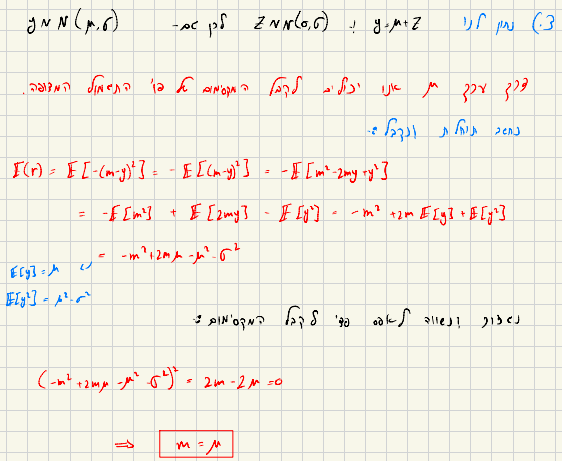 3.) נתון לנו y=μ+z ו: z~N(0,σ) לכן אם- y~N(μ,σ)
דרך ערך μ אנו יכולים לקבל המקסימום של פו' התגמול המצופה.
נחשב תוחלת ונקבל:-
E(r) = E[-(m-y)²] = -E[(m-y)²] = -E[m²-2my+y²]
= -E[m²] + E[2my] - E[y²] = -m² + 2m E[y] + E[y²]
= -m²+2mμ-μ²-σ²
E[y] = μ
E[y²] = μ²-σ²
נגזור ונשווה לאפס כדי לקבל המקסימום:-
(-m²+2mμ-μ²-σ²)² = 2m-2μ=0
⟹ m = μ